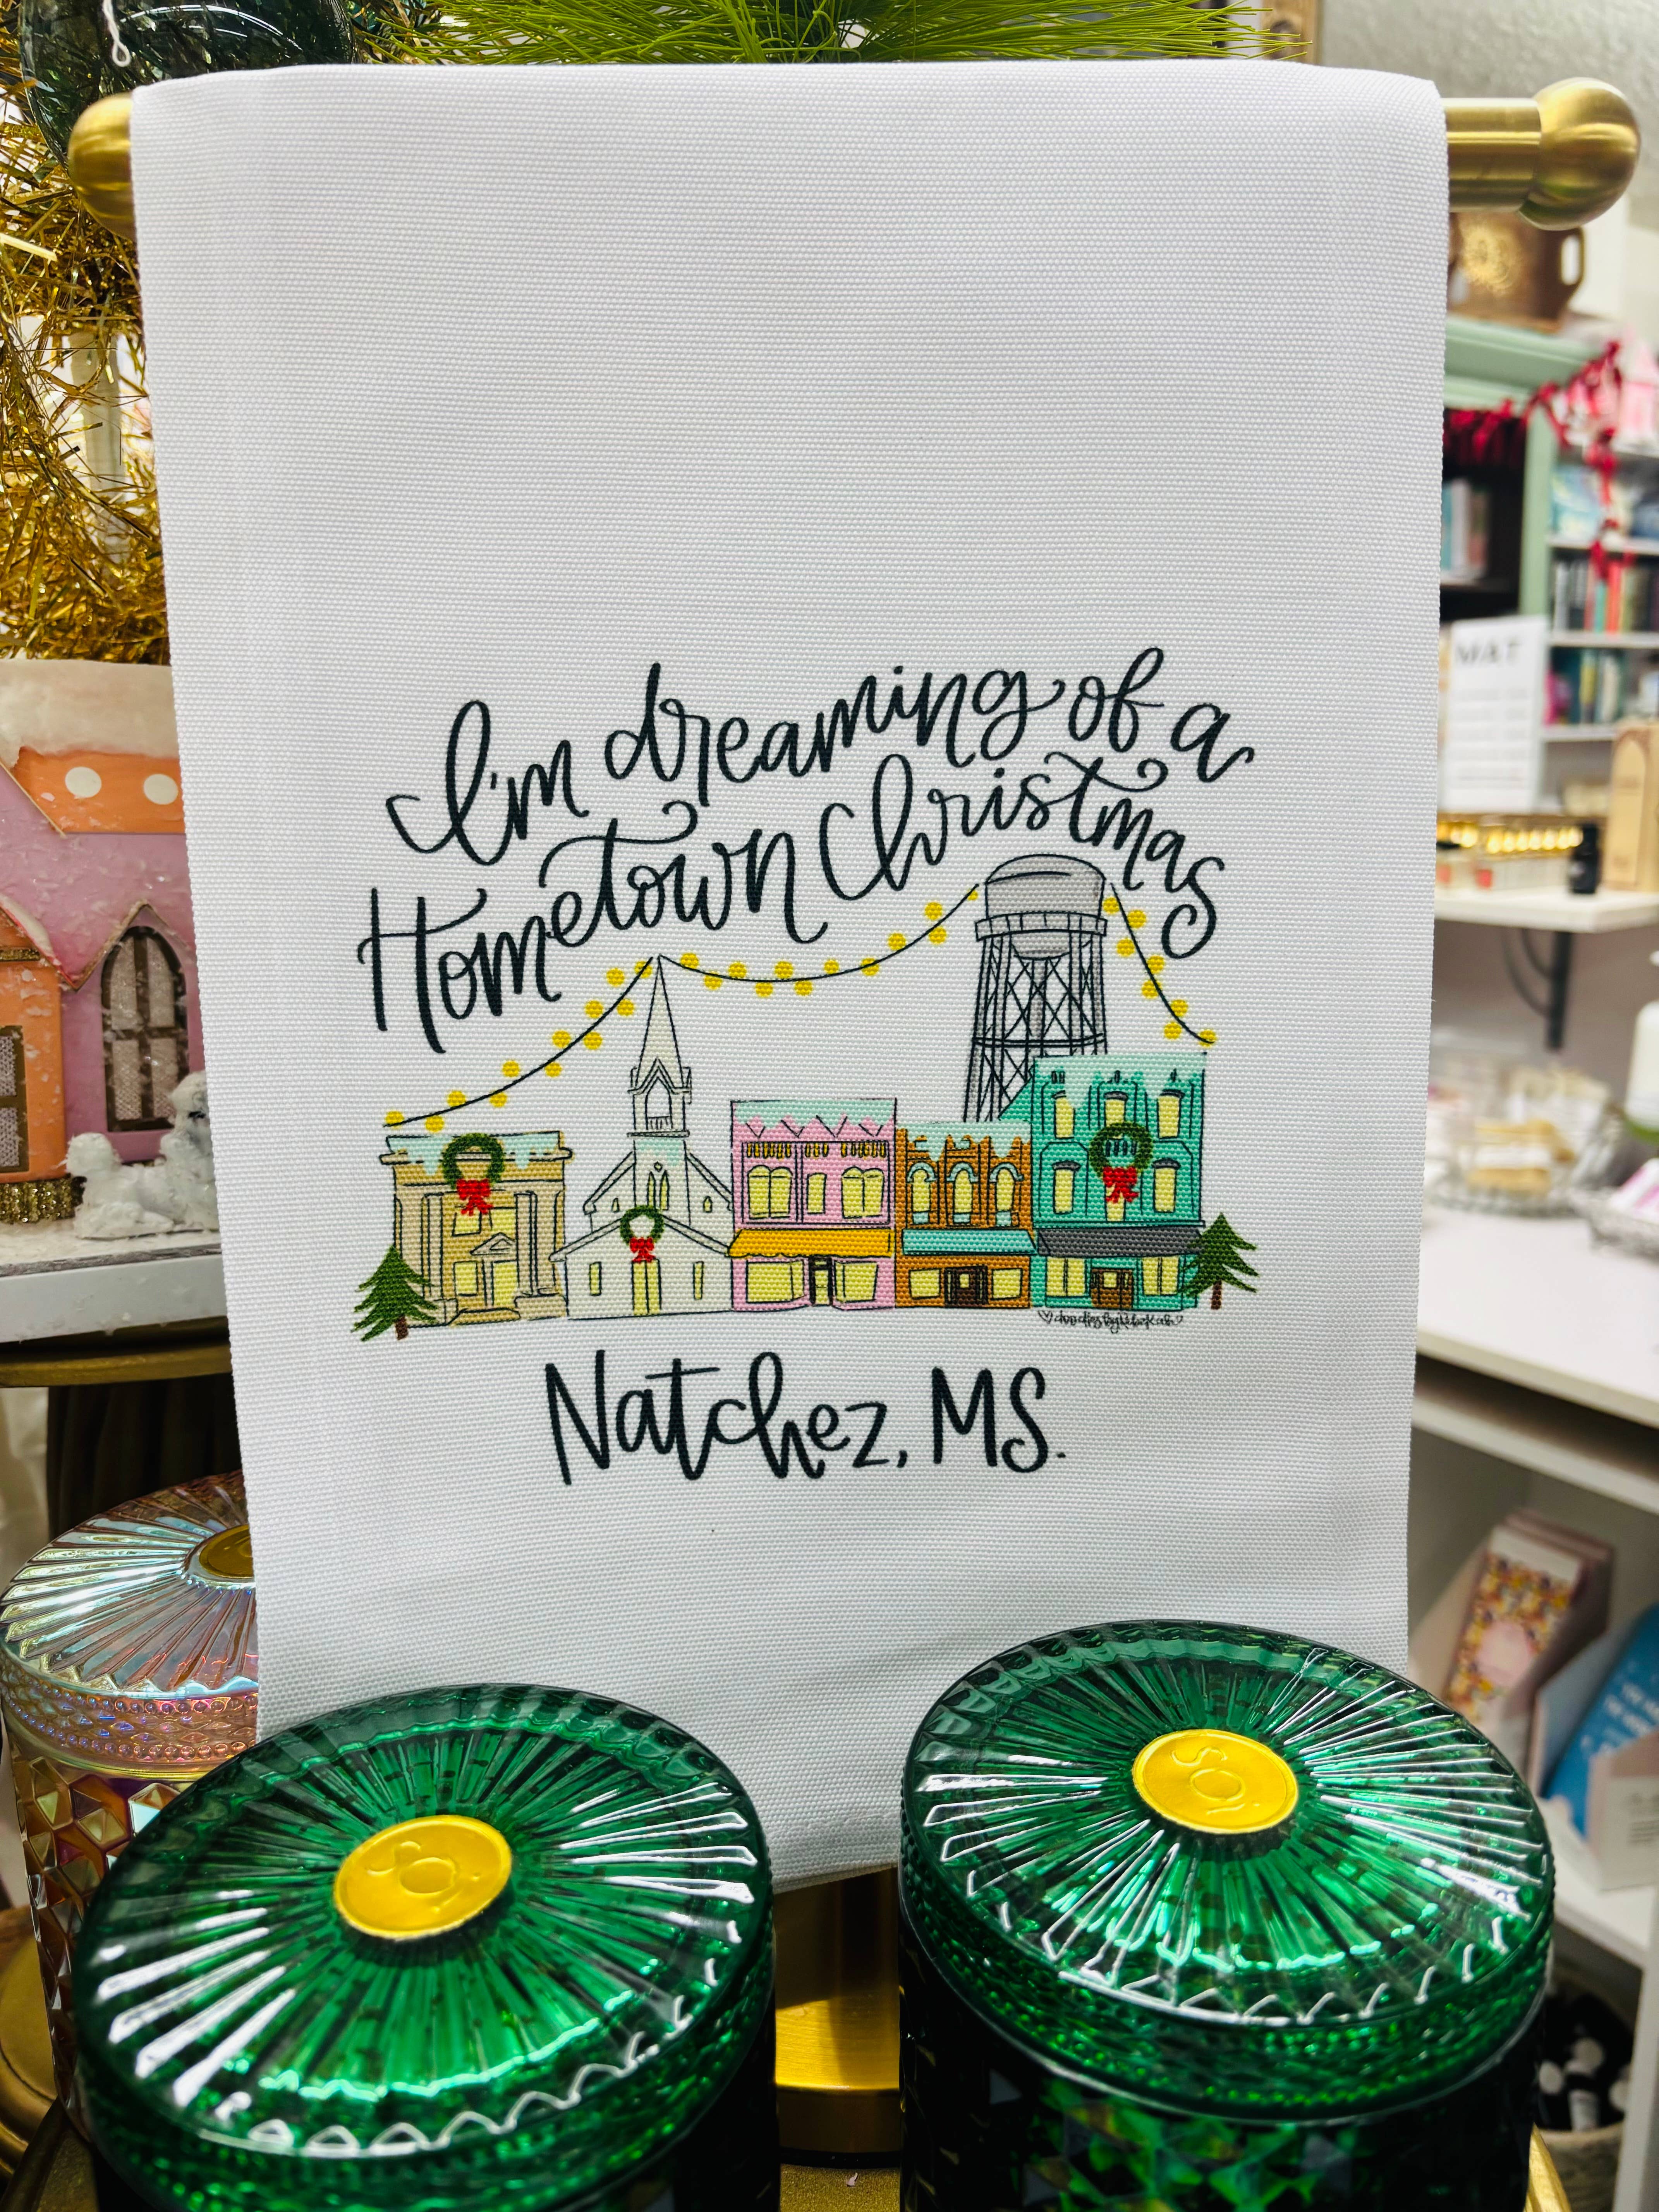 I'm dreaming of a
Hometown Christmas
Natchez, MS.